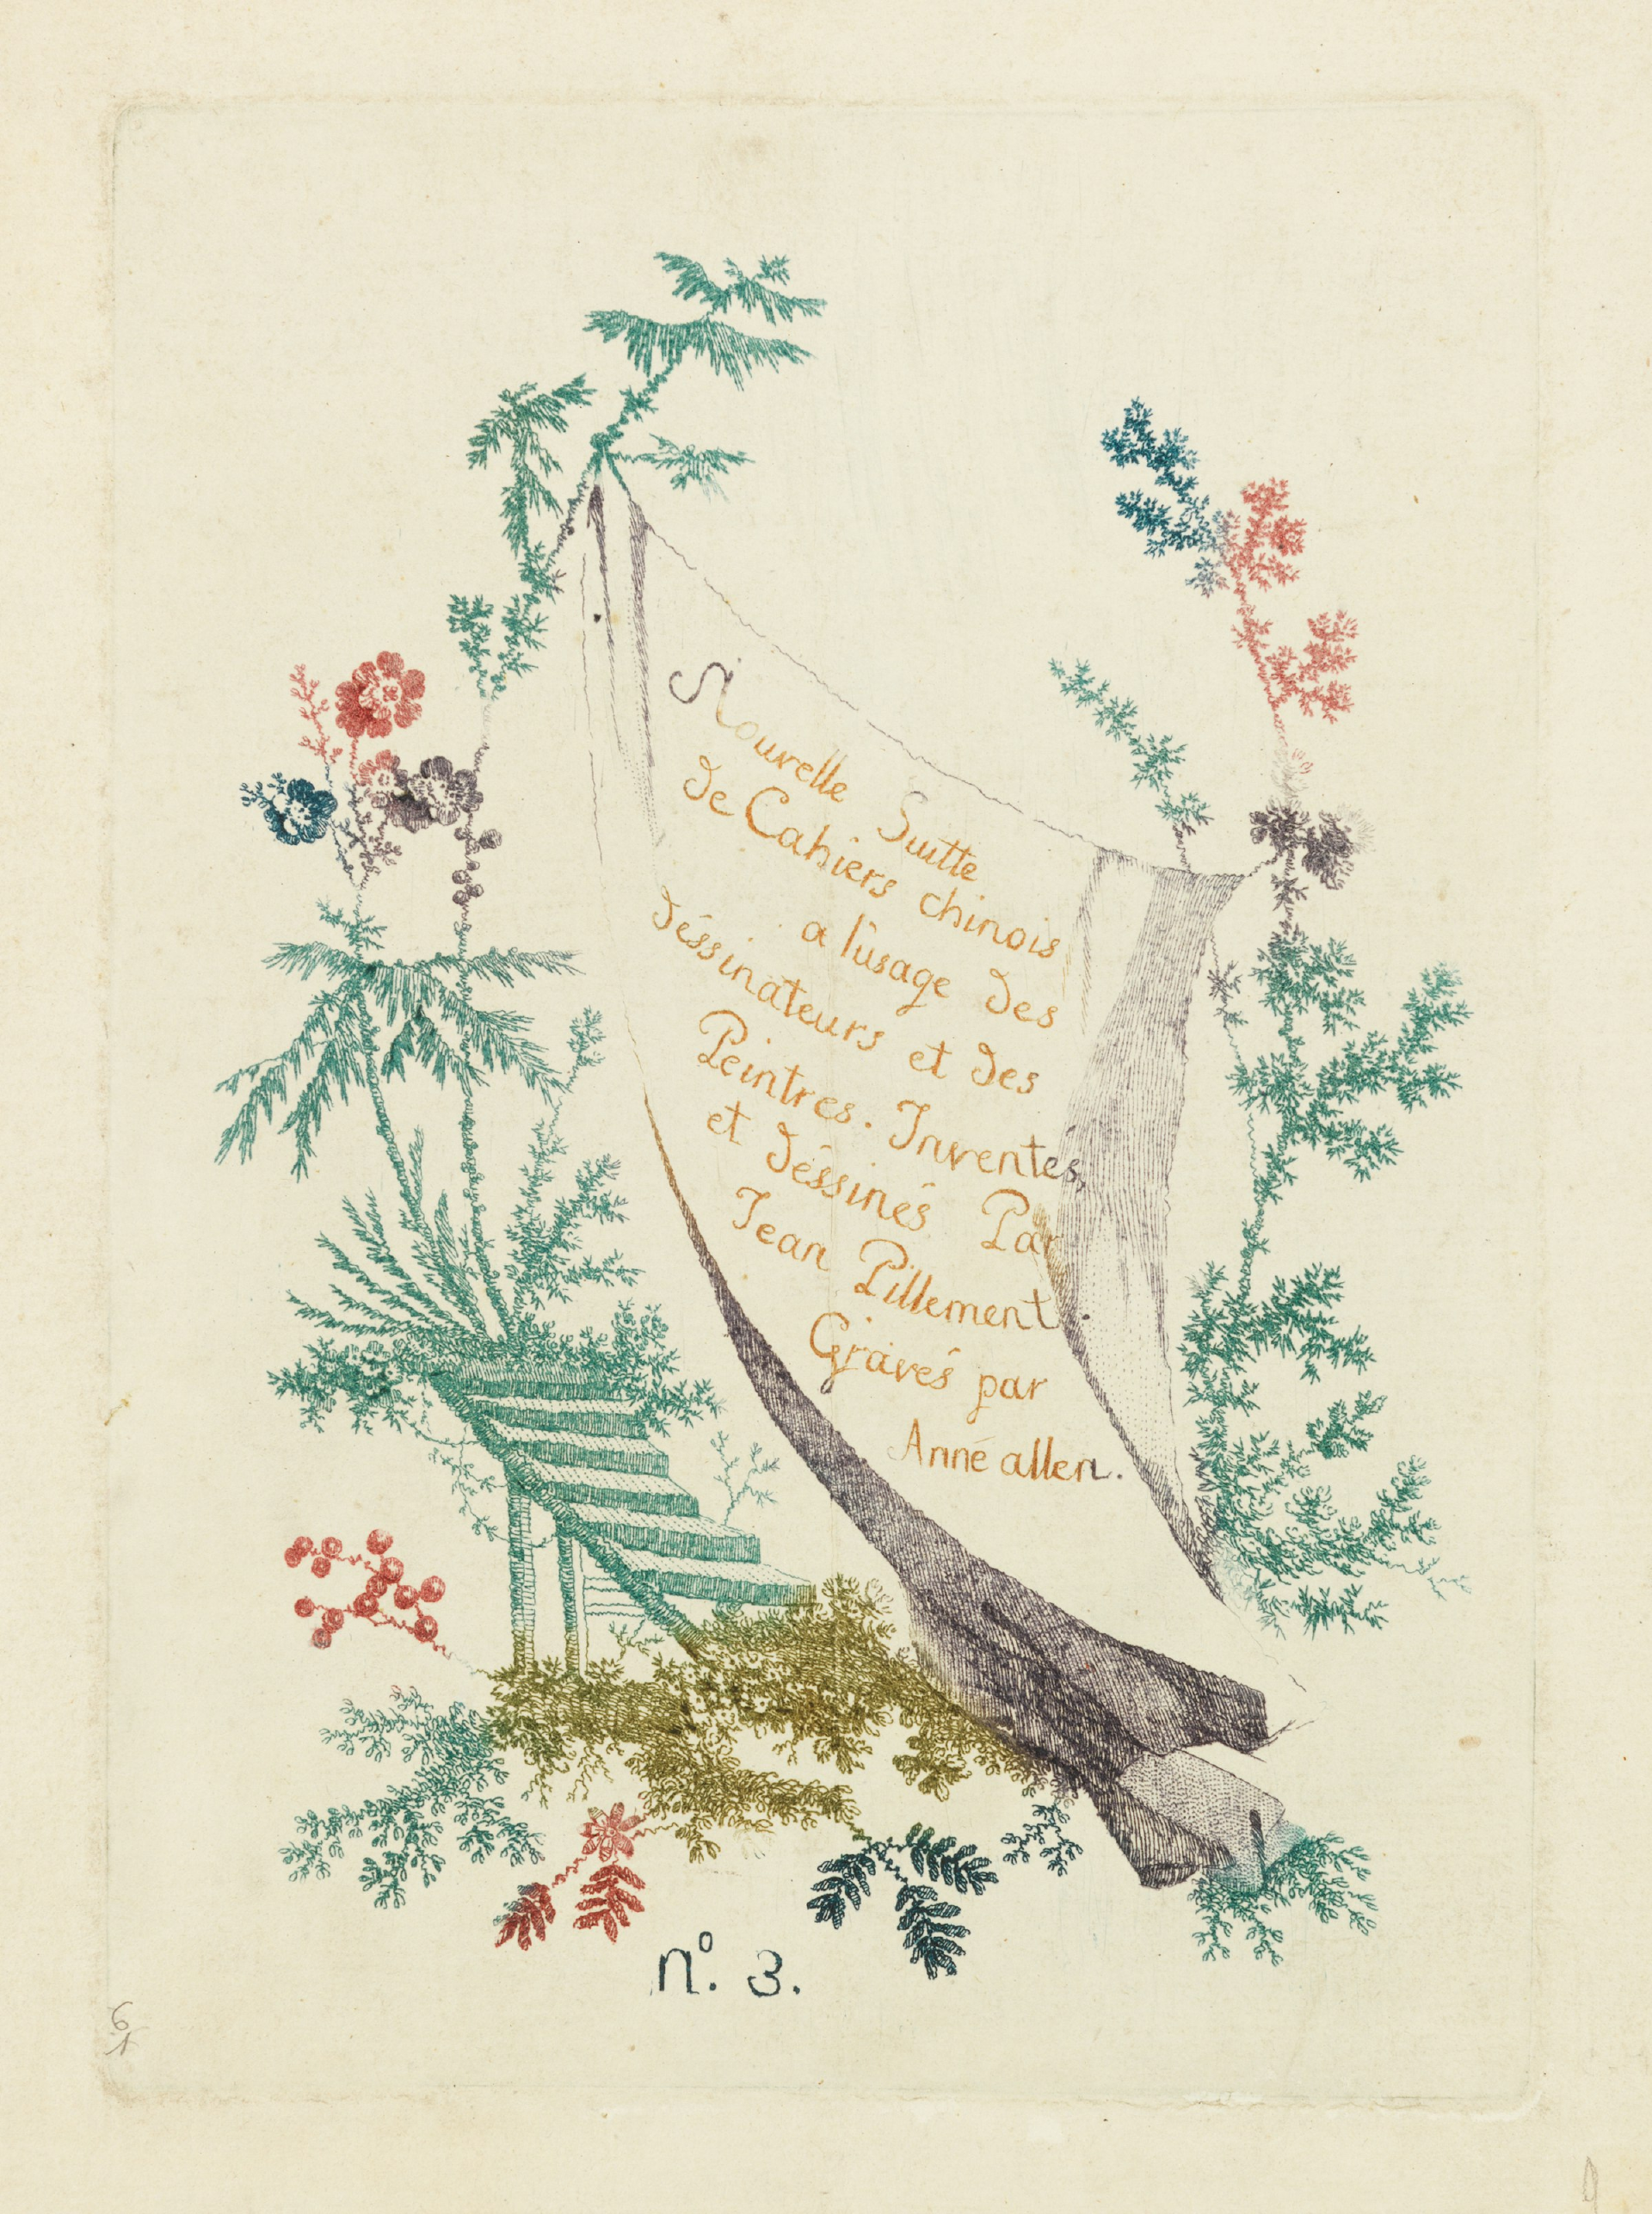 Nouvelle Suitte
de Cahiers chinois
a l'usage des
déssinateurs et des
Peintres. Inventes,
et déssinés Par
Jean Pillement
Gravés par
Anné allen.
nº. 3.
6
1